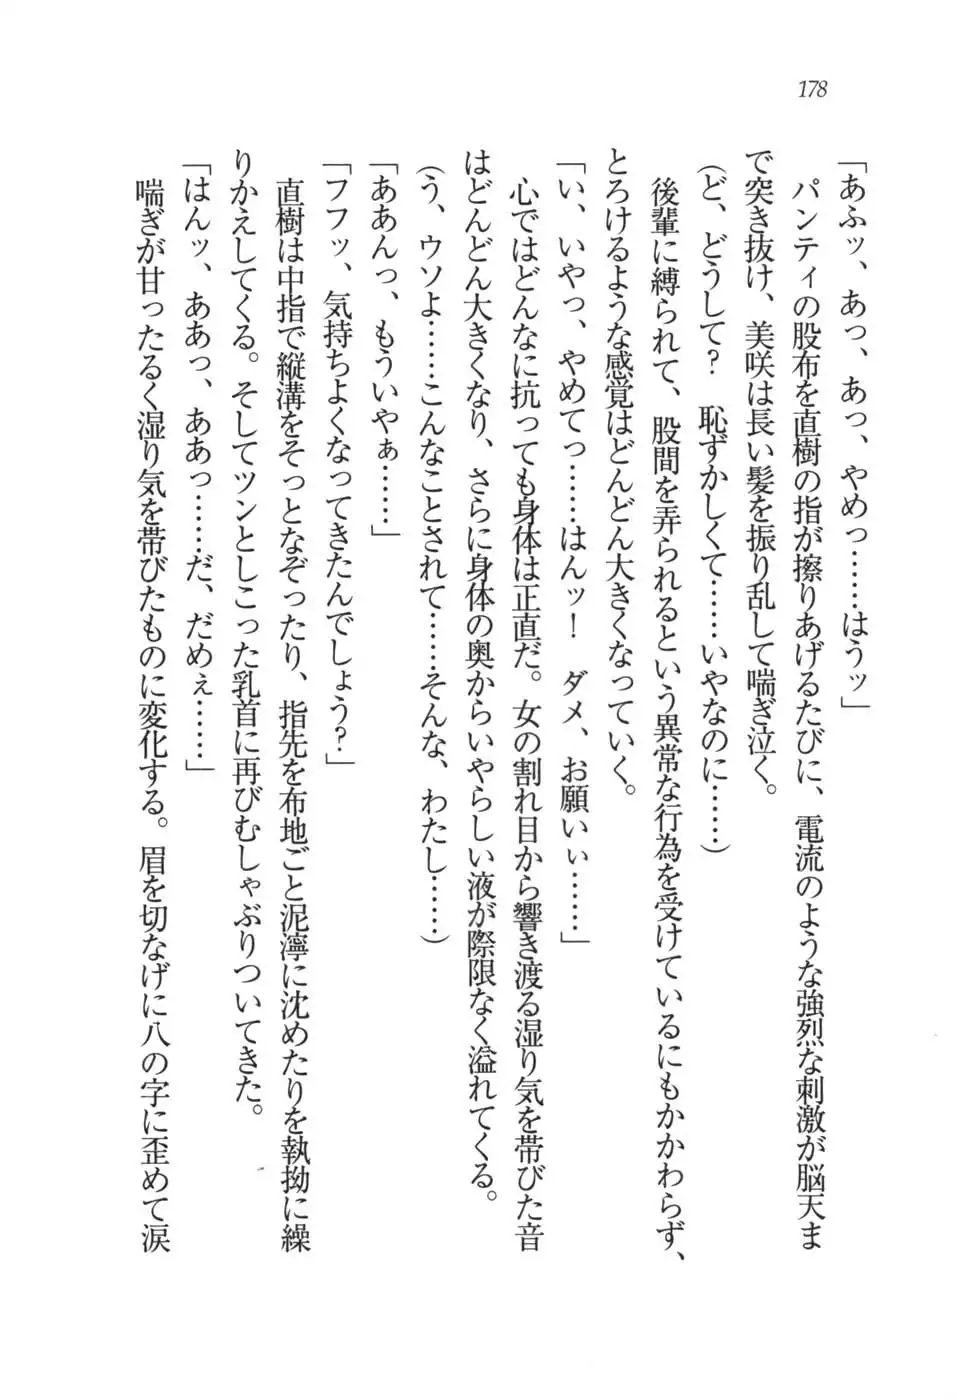 178
「あふッ、あっ、あっ、やめっ……はうッ」
パンティの股布を直樹の指が擦りあげるたびに、電流のような強烈な刺激が脳天ま
で突き抜け、美咲は長い髪を振り乱して喘ぎ泣く。
(ど、どうして? 恥ずかしくて……いやなのに……)
後輩に縛られて、股間を弄られるという異常な行為を受けているにもかかわらず、
とろけるような感覚はどんどん大きくなっていく。
「い、いやっ、やめてっ……はんッ! ダメ、お願いぃ……」
心ではどんなに抗っても身体は正直だ。女の割れ目から響き渡る湿り気を帯びた音
はどんどん大きくなり、さらに身体の奥からいやらしい液が際限なく溢れてくる。
(う、ウソよ……こんなことされて……そんな、わたし……)
「ああんっ、もういやぁ……」
「フフッ、気持ちよくなってきたんでしょう?」
直樹は中指で縦溝をそっとなぞったり、指先を布地ごと泥濘に沈めたりを執拗に繰
りかえしてくる。そしてツンとしこった乳首に再びむしゃぶりついてきた。
「はんッ、ああっ、ああっ……だ、だめぇ……」
喘ぎが甘ったるく湿り気を帯びたものに変化する。眉を切なげに八の字に歪めて涙